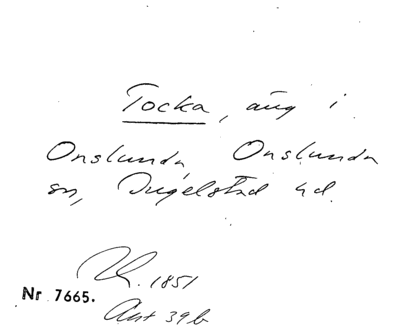 Tocka, äng i
Onslunda, Onslunda
sn, Ingelstad hd.
1851
Nr 7665.
Akt 39b